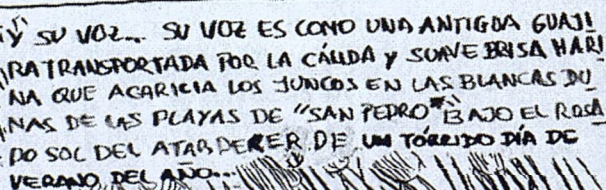 ¡Y SU VOZ... SU VOZ ES COMO UNA ANTIGUA GUAJI
RA TRANSPORTADA POR LA CÁLIDA Y SUAVE BRISA MARI
NA QUE ACARICIA LOS JUNCOS EN LAS BLANCAS DU
NAS DE LAS PLAYAS DE "SAN PEDRO" BAJO EL ROSA
DO SOL DEL ATARDECER DE UN TÓRRIDO DÍA DE
VERANO DEL AÑO...